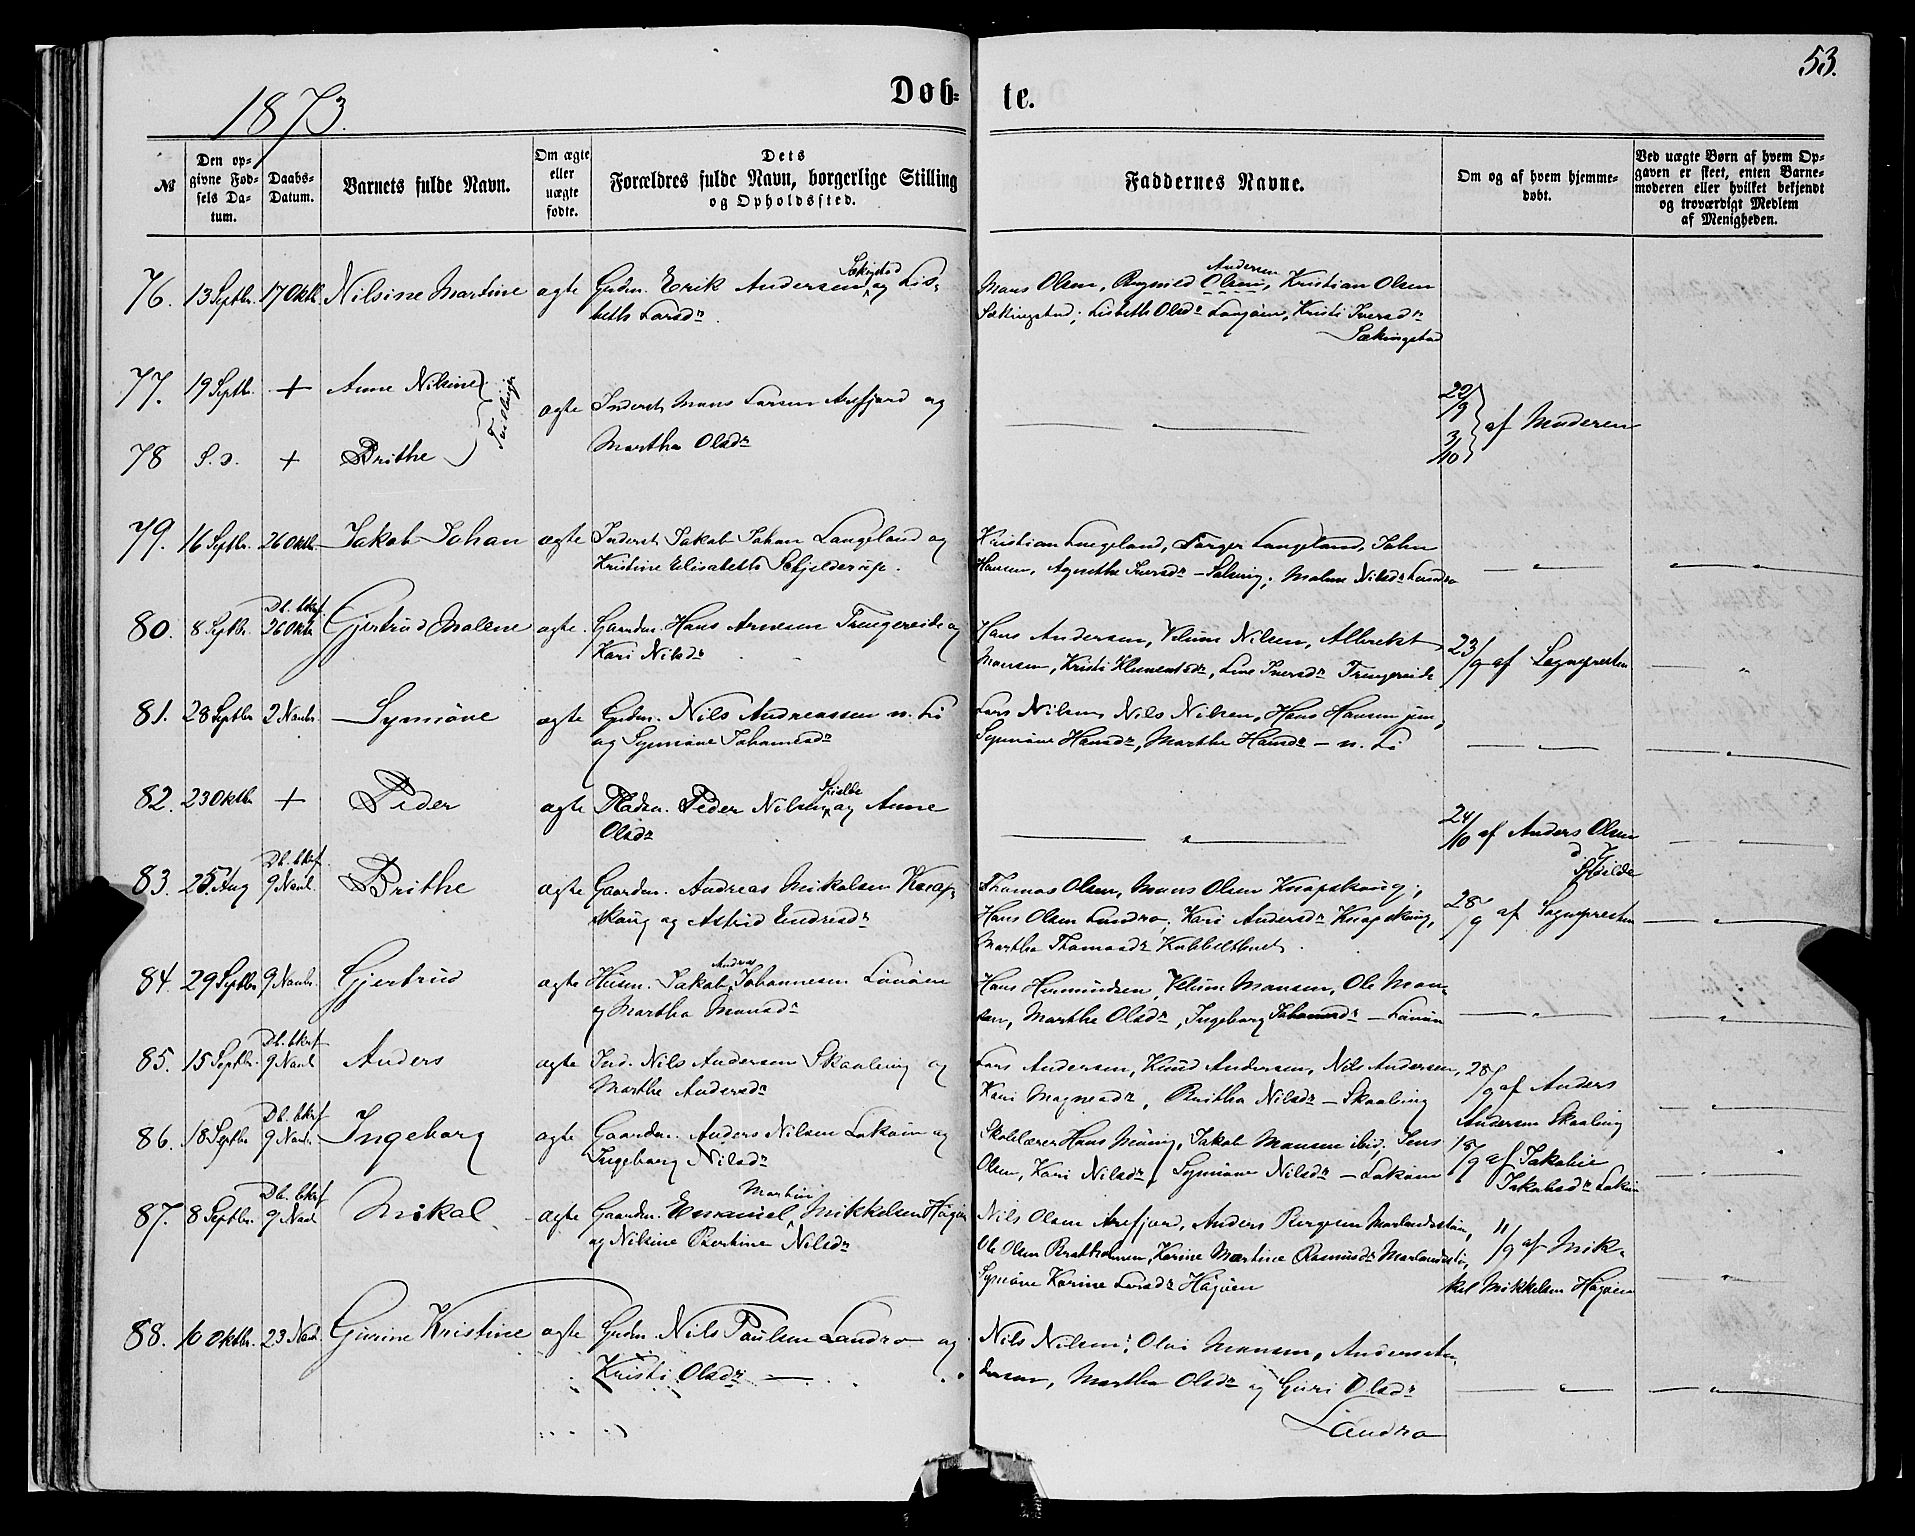 53.
1873.
Døb- te.
№
Den opgivne Fødsels Datum.
Daabs-Datum.
Barnets fulde Navn.
Om ægte eller uægte fødte.
Dets Forældres fulde Navn, borgerlige Stilling og Opholdssted.
Faddernes Navne.
Om og af hvem hjemmedøbt.
Ved uægte Børn af hvem Opgaven er skeet, enten Barnemoderen eller hvilket bekjendt og troværdigt Medlem af Menigheden.
76. 13 Septbr. 17 Oktb. Nilsine Martine ægte Grdm. Erik Andersen og Lis-
beth Larsdr.
Mons Olsen, Ragnild Olsen, Andersen Kristian Olsen
Lisbeth Olsdr Kristi Iversdr
77. 19 Septbr. + Anne Nilsine Tvillinger ægte Inderst Mons Larsen Arefjord og
22/9
78 S.D. + Brithe Martha Olsdr
3/10 af Moderen
79. 16 Septbr. 26 Oktbr. Jakob Johan ægte Inderst Jakob Johan Langeland og
Kristine Elisabeth
Kristian Langeland, Torger Langeland, John
Hansen, Agnethe Iversdr Malene Nilsdr Landro
80. 8 Septbr. Db. bkrf. 26 Oktb Gjertrud Malene ægte. Gaardm. Hans Arnesen Trengereide og
Kari Nilsdr
Hans Andersen, Velum Nilsen, Albrekt
Monsen, Kristi Klementsdr, Iversdr Trengereide
23/9 af Sognepresten
81. 28 Septbr 2 Novbr. Synnøve ægte Grdm. Nils Andreassen n. Lie
og Synnøve Johannesdr
Lars Nilsen, Nils Nilsen, Hans Hansen jun,
Synnøve Hansdr, Marthe Hansdr - n. Lie
82. 23 Oktbr + Peder ægte Pladsm. Peder Nilsen og Anne
Olsdr
24/10 af Anders Olsen
83. 25 Aug Db. bkrf. 9 Novb. Brithe ægte Gaardm. Andreas Mikalsen Knap-
skoug og Astrid Endresdr
Thomas Olsen, Mons Olsen Knapskoug,
Hans Olsen Landro, Kari Andersdr Knapskoug,
Martha Thomasdr
28/9 af Sognepresten
84. 29 Septbr 9 Novbr. Gjertrud ægte Husm. Jakob Andreas Johannesen Lønøen
og Martha Monsdr
Hans Hermundsen, Velum Monsen, Ole Mon-
sen, Marthe Olsdr, Ingeborg Johannesdr - Lønøen
85. 15 Septbr. Db. bkrf 9 Novb Anders ægte Ind. Nils Andersen Skaalvig og
Marthe Andersdr
Lars Andersen, Knud Andersen, Nils Andersen,
Kari Magnesdr, Brithe Nilsdr - Skaalvig
28/9 af Anders
Andersen Skaalvig
86. 18 Septbr Db. bkrf 9 Novbr. Ingeborg ægte Gaardm. Anders Nilsen Lokøen og
Ingeborg Nilsdr
Skolelærer Hans Jakob Monsen ibid; Jens
Olsen, Kari Nilsdr, Synnøve Nilsdr - Lokøen
18/9 af Jakobie
Jakobsdr Lokøen
87. 8 Septbr. Db. bkrf 9 Novb Mikal ægte Gaardm. Emanuel Martin Mikkelsen Høgøen
og Nilsine Bertine Nilsdr
Nils Olsen Arefjord, Anders Børgesen
Ole Olsen Bratholmen, Karine Martine Rasmusdr
Synnøve Karine Larsdr Høgøen
11/9 af Mik-
kel Mikkelsen Høgøen
88. 10 Oktbr. 23 Novb. Gurine Kristine ægte Grdm. Nils Paulsen Landro og
Kristi Olsdr
Nils Nilsen, Olai Monsen, Anders An-
dersen, Martha Olsdr og Guri Olsdr
Landro